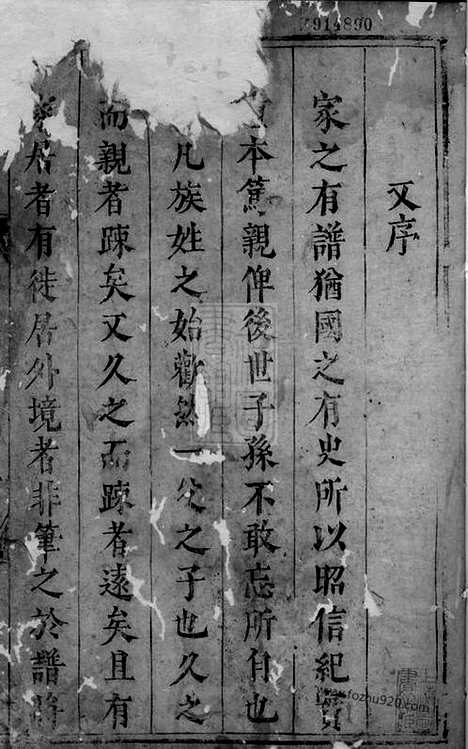 914890
又序
家之有譜猶國之有史所以昭信紀實
本篤親俾後世子孫不敢忘所自也
凡族姓之始歡然一父之子也久之
而親者踈矣又久之而踈者遠矣且有
居者有徙居外境者非筆之於譜將
fozhu920.com